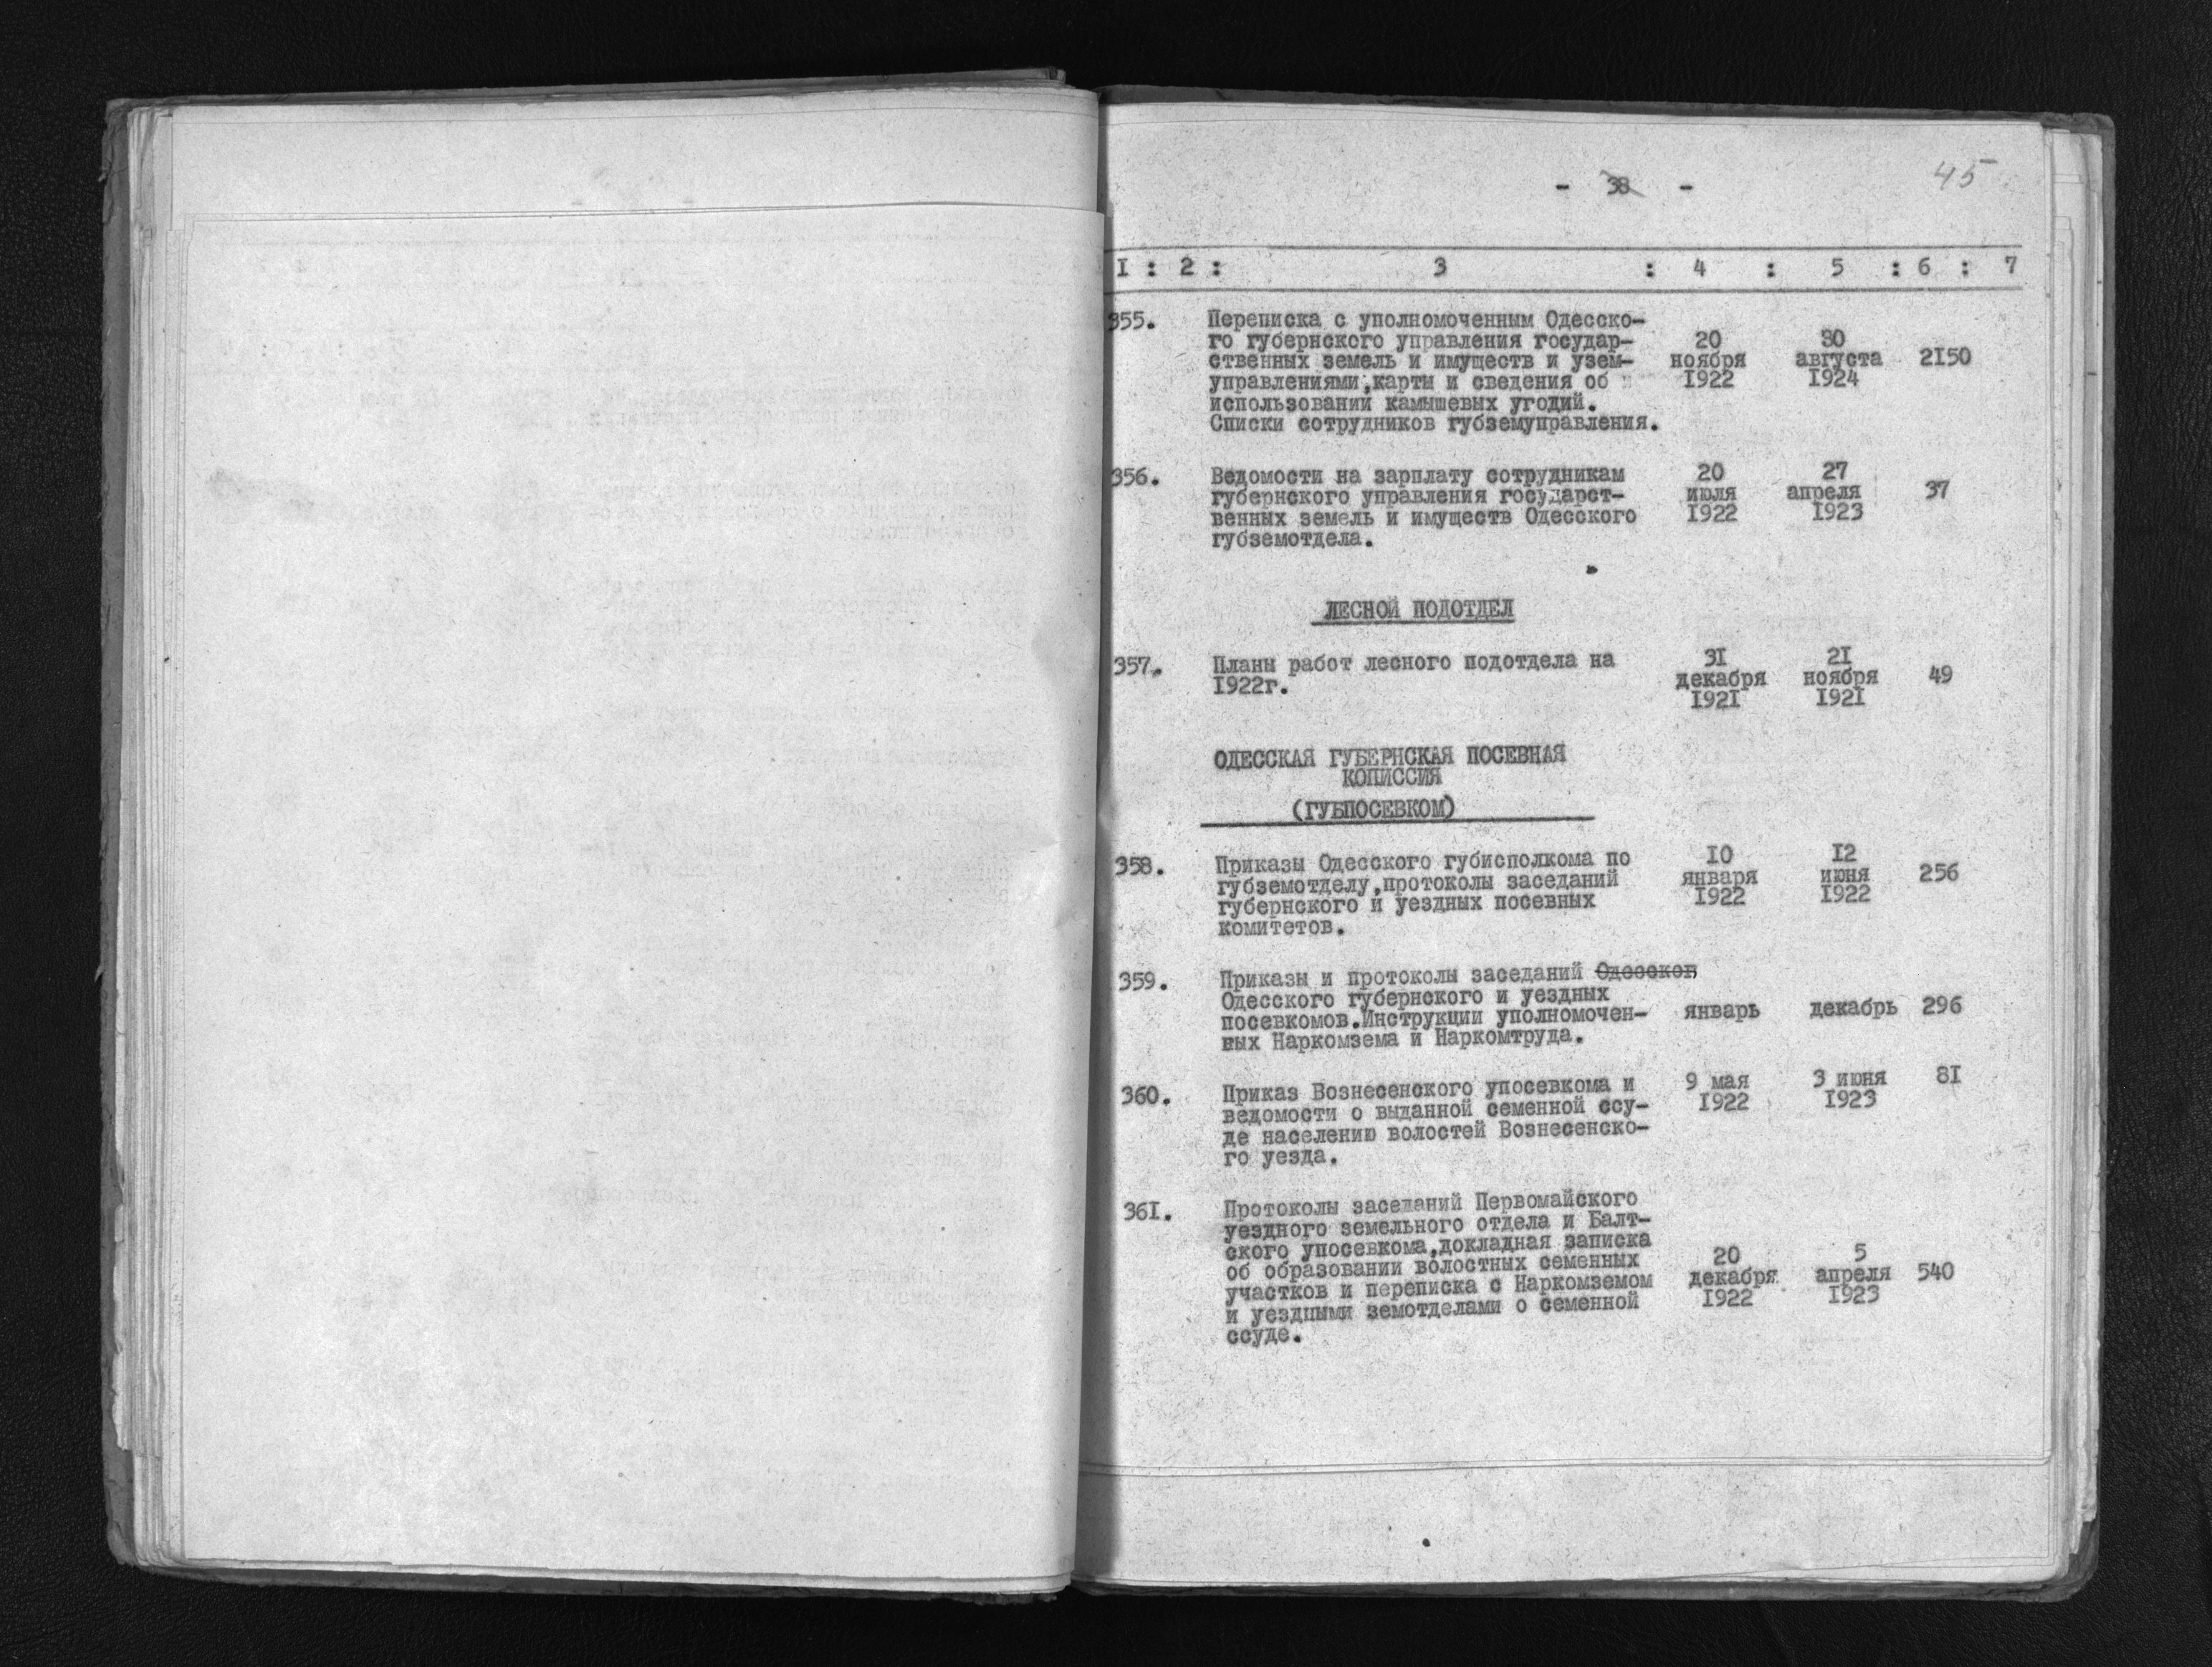 - 38 -
45
I : 2 : 3 : 4 : 5 : 6 : 7
355. Переписка с уполномоченным Одесско-
го губернского управления государ- 20 30
ственных земель и имуществ и узем- ноября августа 2150
управлениями,карты и сведения об 1922 1924
использовании камышевых угодий.
Списки сотрудников губземуправления.
356. Ведомости на зарплату сотрудникам 20 27
губернского управления государст- июля апреля 37
венных земель и имуществ Одесского 1922 1923
губземотдела.
ЛЕСНОЙ ПОДОТДЕЛ
357. Планы работ лесного подотдела на 31 21
1922г. декабря ноября 49
1921 1921
ОДЕССКАЯ ГУБЕРНСКАЯ ПОСЕВНАЯ
КОПИССИЯ
(ГУБПОСЕВКОМ)
358. Приказы Одесского губисполкома по 10 12
губземотделу,протоколы заседаний января июня 256
губернского и уездных посевных 1922 1922
комитетов.
359. Приказы и протоколы заседаний Одесског
Одесского губернского и уездных
посевкомов.Инструкции уполномочен- январь декабрь 296
ных Наркомзема и Наркомтруда.
360. Приказ Вознесенского упосевкома и 9 мая 3 июня 81
ведомости о выданной семенной ссу- 1922 1923
де населению волостей Вознесенско-
го уезда.
361. Протоколы заседаний Первомайского
уездного земельного отдела и Балт-
ского упосевкома,докладная записка
об образовании волостных семенных 20 5
участков и переписка с Наркомземом декабря апреля 540
и уездными земотделами о семенной 1922 1923
ссуде.